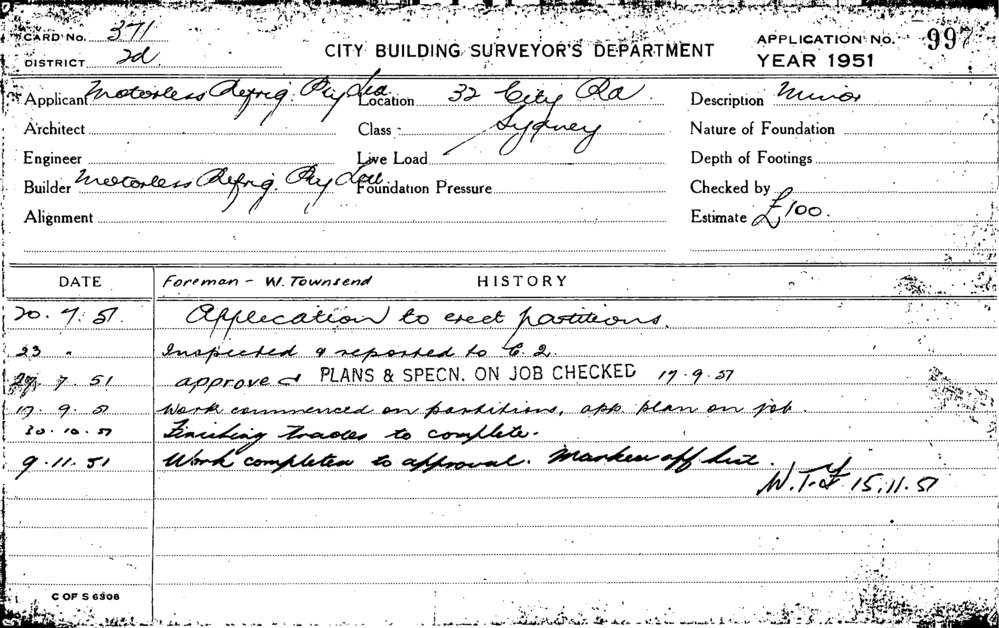 CARD NO. 371
DISTRICT 2d
CITY BUILDING SURVEYOR'S DEPARTMENT
APPLICATION NO. 997
YEAR 1951
Applicant Motorless Refrig. Pty Ltd Location 32 City Rd Description Minor
Architect Class Sydney Nature of Foundation
Engineer Live Load Depth of Footings
Builder Motorless Refrig. Pty Ltd Foundation Pressure Checked by
Alignment Estimate £100.
DATE Foreman - W. Townsend HISTORY
20.7.51. Application to erect partitions.
23 " Inspected & reported to C.2.
7 51 approved PLANS & SPECN. ON JOB CHECKED 17.9.51
17.9.51 Work commenced on partitions, app plan on job.
30.10.51 Finishing trades to complete.
9.11.51 Work completed to approval. Marked off list.
W.T. 15.11.51
C OF S 6308